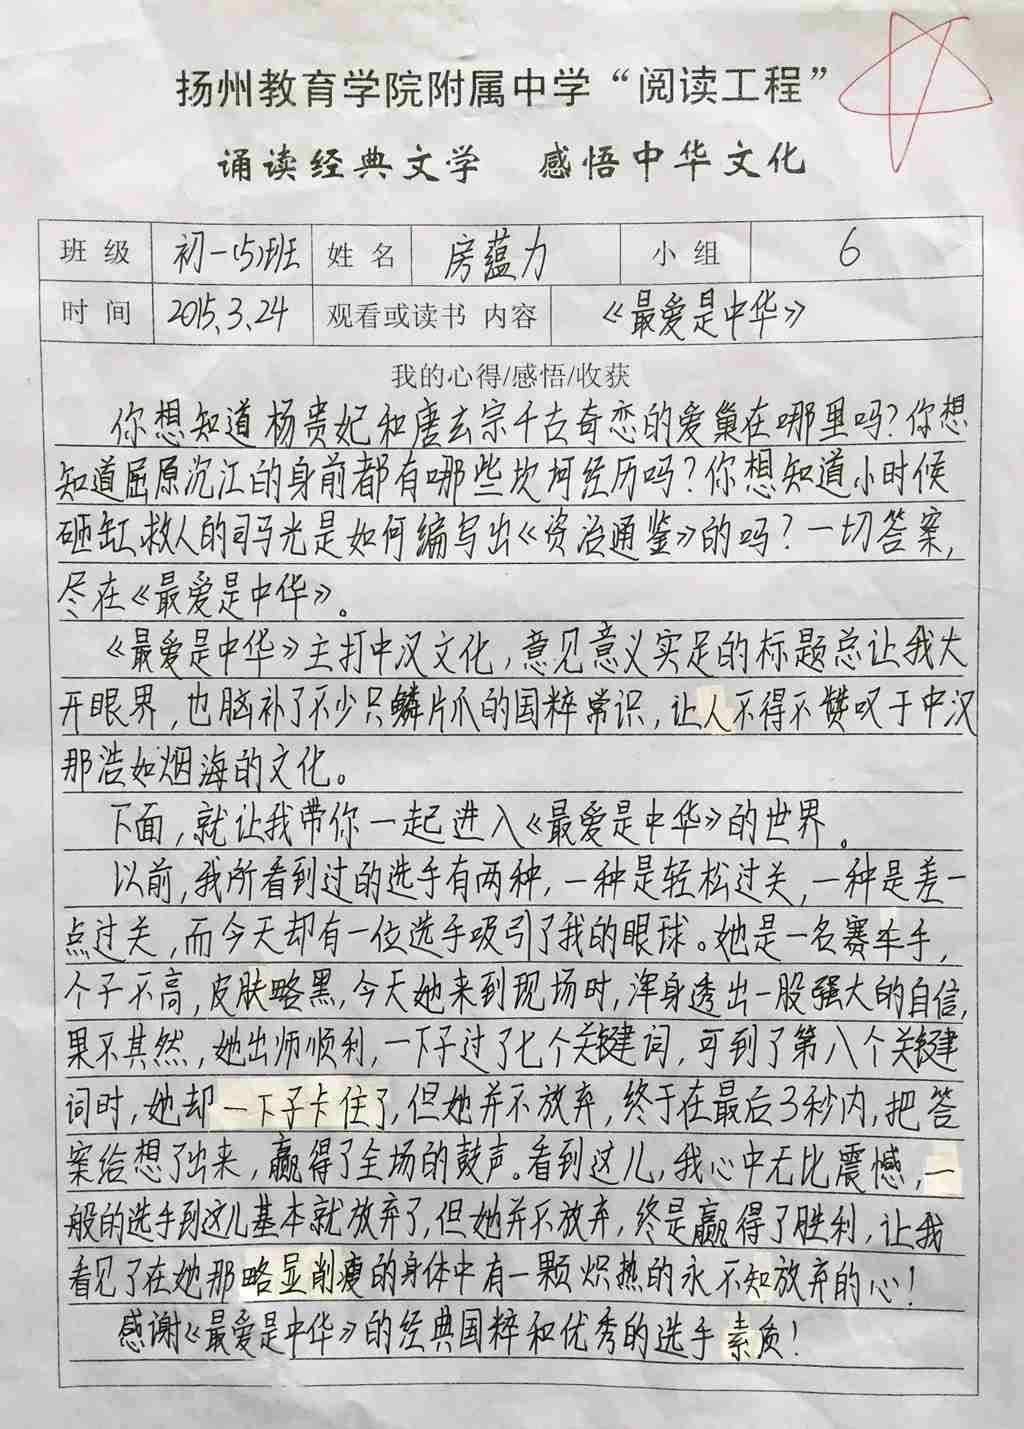 扬州教育学院附属中学“阅读工程”
诵读经典文学 感悟中华文化
班级 初一(5)班 姓名 房蕴力 小组 6
时间 2015.3.24 观看或读书 内容 《最爱是中华》
我的心得/感悟/收获
你想知道杨贵妃和唐玄宗千古奇恋的爱巢在哪里吗?你想
知道屈原沉江的身前都有哪些坎坷经历吗?你想知道小时候
砸缸救人的司马光是如何编写出《资治通鉴》的吗?一切答案,
尽在《最爱是中华》。
《最爱是中华》主打中汉文化,意见意义实足的标题总让我大
开眼界,也脑补了不少只鳞片爪的国粹常识,让人不得不赞叹于中汉
那浩如烟海的文化。
下面,就让我带你一起进入《最爱是中华》的世界。
以前,我所看到过的选手有两种,一种是轻松过关,一种是差一
点过关,而今天却有一位选手吸引了我的眼球。她是一名赛车手,
个子不高,皮肤略黑,今天她来到现场时,浑身透出一股强大的自信,
果不其然,她出师顺利,一下子过了七个关键词,可到了第八个关键
词时,她却一下子卡住了,但她并不放弃,终于在最后3秒内,把答
案给想了出来,赢得了全场的鼓声。看到这儿,我心中无比震憾,一
般的选手到这儿基本就放弃了,但她并不放弃,终是赢得了胜利,让我
看见了在她那略显削瘦的身体中有一颗炽热的永不知放弃的心!
感谢《最爱是中华》的经典国粹和优秀的选手素质!